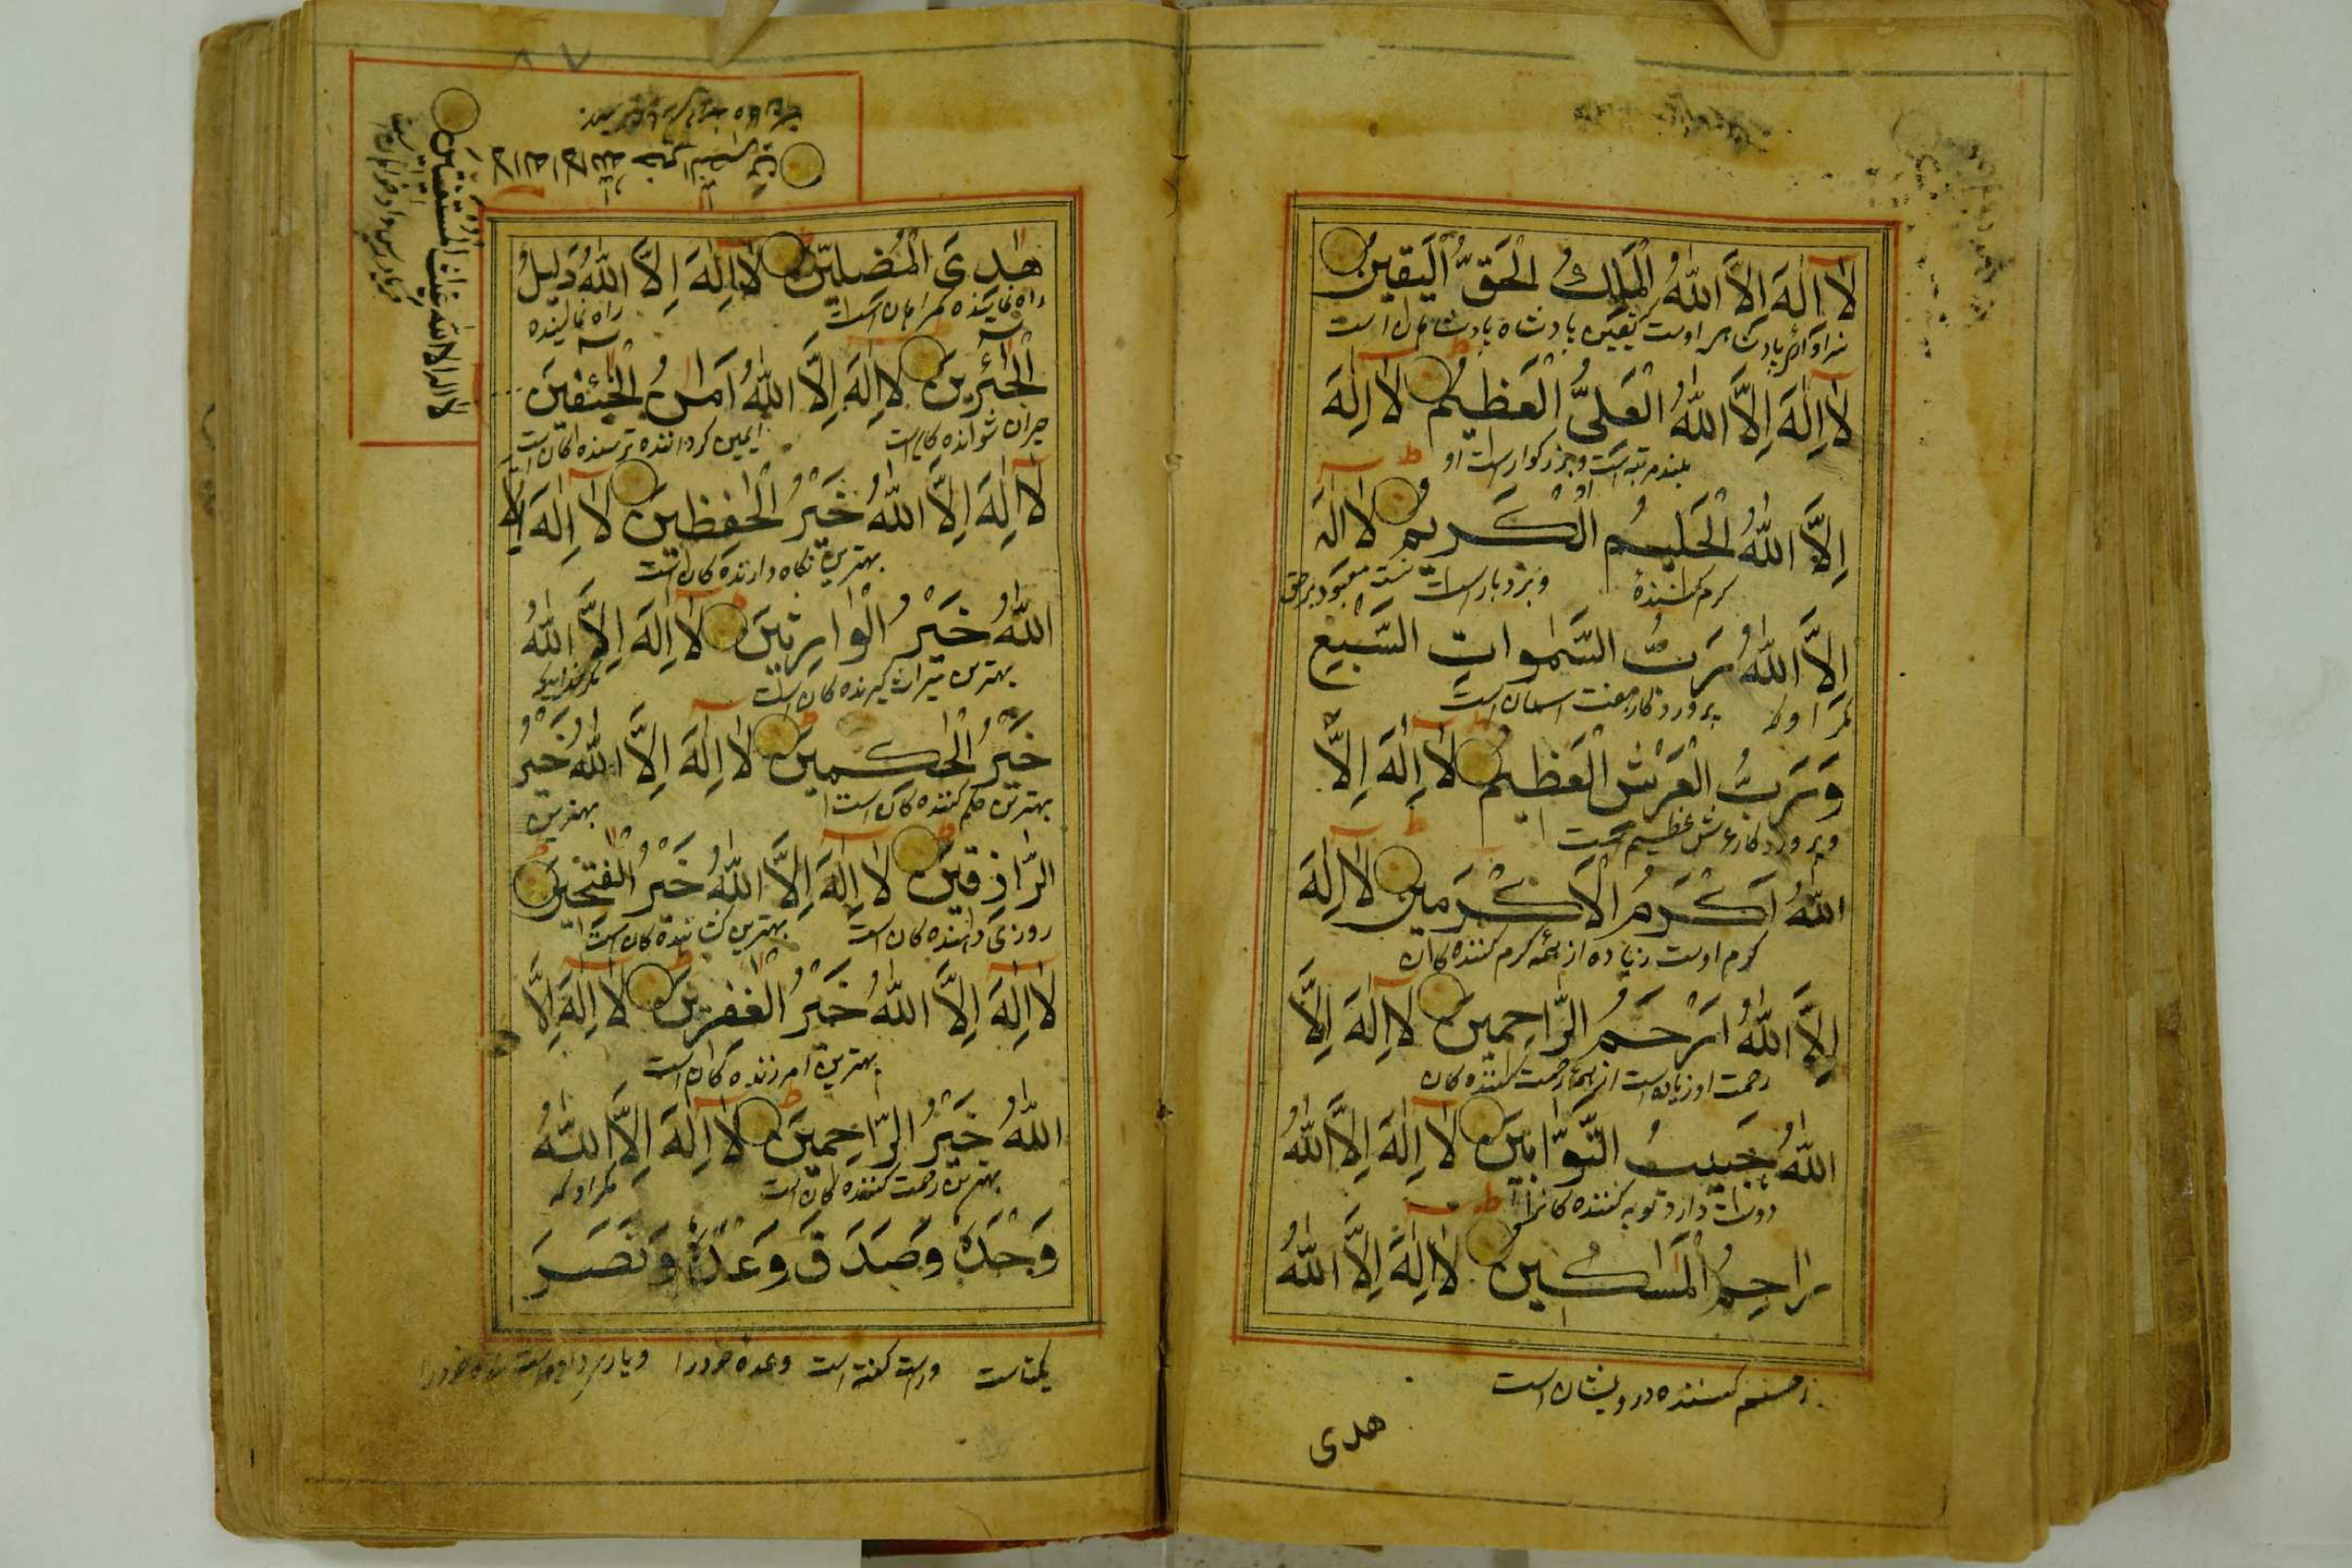 لَا اِلٰهَ اِلَّا اللّٰهُ الْمَلِكُ الْحَقُّ الْيَقِينُ
لَا اِلٰهَ اِلَّا اللّٰهُ الْعَلِيُّ الْعَظِيمُ لَا اِلٰهَ
بلند مرتبه است و بزرگوار است او
اِلَّا اللّٰهُ الْحَلِيمُ الْكَرِيمُ لَا اِلٰهَ
کرم کننده و بردبار است نیست معبود بر حق
اِلَّا اللّٰهُ رَبُّ السَّمٰوَاتِ السَّبْعِ
مگر او که پروردگار هفت اسمان است
وَرَبُّ الْعَرْشِ الْعَظِيمِ لَا اِلٰهَ اِلَّا
و پروردگار عرش عظیم است
اللّٰهُ اَكْرَمُ الْاَكْرَمِينَ لَا اِلٰهَ
کرم اوست زیاده از همه کرم کننده کان
اِلَّا اللّٰهُ اَرْحَمُ الرَّاحِمِينَ لَا اِلٰهَ اِلَّا
رحمت او زیاده است از همه رحمت کننده کان
اللّٰهُ حَبِيبُ التَّوَّابِينَ لَا اِلٰهَ اِلَّا اللّٰهُ
دوست دارد توبه کننده کانرا
رَاحِمُ الْمَسَاكِينِ لَا اِلٰهَ اِلَّا اللّٰهُ
رحم کننده درویشان است
هدی
هٰدِیَ الْمُضِلِّينَ لَا اِلٰهَ اِلَّا اللّٰهُ دَلِيلُ
راه نماینده کمراهان است راه نماینده
الْحَائِرِينَ لَا اِلٰهَ اِلَّا اللّٰهُ اَمَانُ الْخَائِفِينَ
حیران شونده کان است ایمن کرداننده ترسنده کان است
لَا اِلٰهَ اِلَّا اللّٰهُ خَيْرُ الْحٰفِظِينَ لَا اِلٰهَ اِلَّا
بهترین نکاه دارنده کان است
اللّٰهُ خَيْرُ الْوَارِثِينَ لَا اِلٰهَ اِلَّا اللّٰهُ
بهترین میراث کیرنده کان است
خَيْرُ الْحٰكِمِينَ لَا اِلٰهَ اِلَّا اللّٰهُ خَيْرُ
بهترین حکم کننده کان است بهترین
الرَّازِقِينَ لَا اِلٰهَ اِلَّا اللّٰهُ خَيْرُ الْفٰتِحِينَ
روزی دهنده کان است بهترین کشاینده کان است
لَا اِلٰهَ اِلَّا اللّٰهُ خَيْرُ الْغٰفِرِينَ لَا اِلٰهَ اِلَّا
بهترین امرزنده کان است
اللّٰهُ خَيْرُ الرَّاحِمِينَ لَا اِلٰهَ اِلَّا اللّٰهُ
بهترین رحمت کننده کان است مکر او که
وَحْدَهُ وَصَدَقَ وَعْدَهُ وَنَصَرَ
یکتاست و راست کفته است وعده خود را
لا اله الا الله خير الناصرين
لا اله الا الله غياث المستغيثين